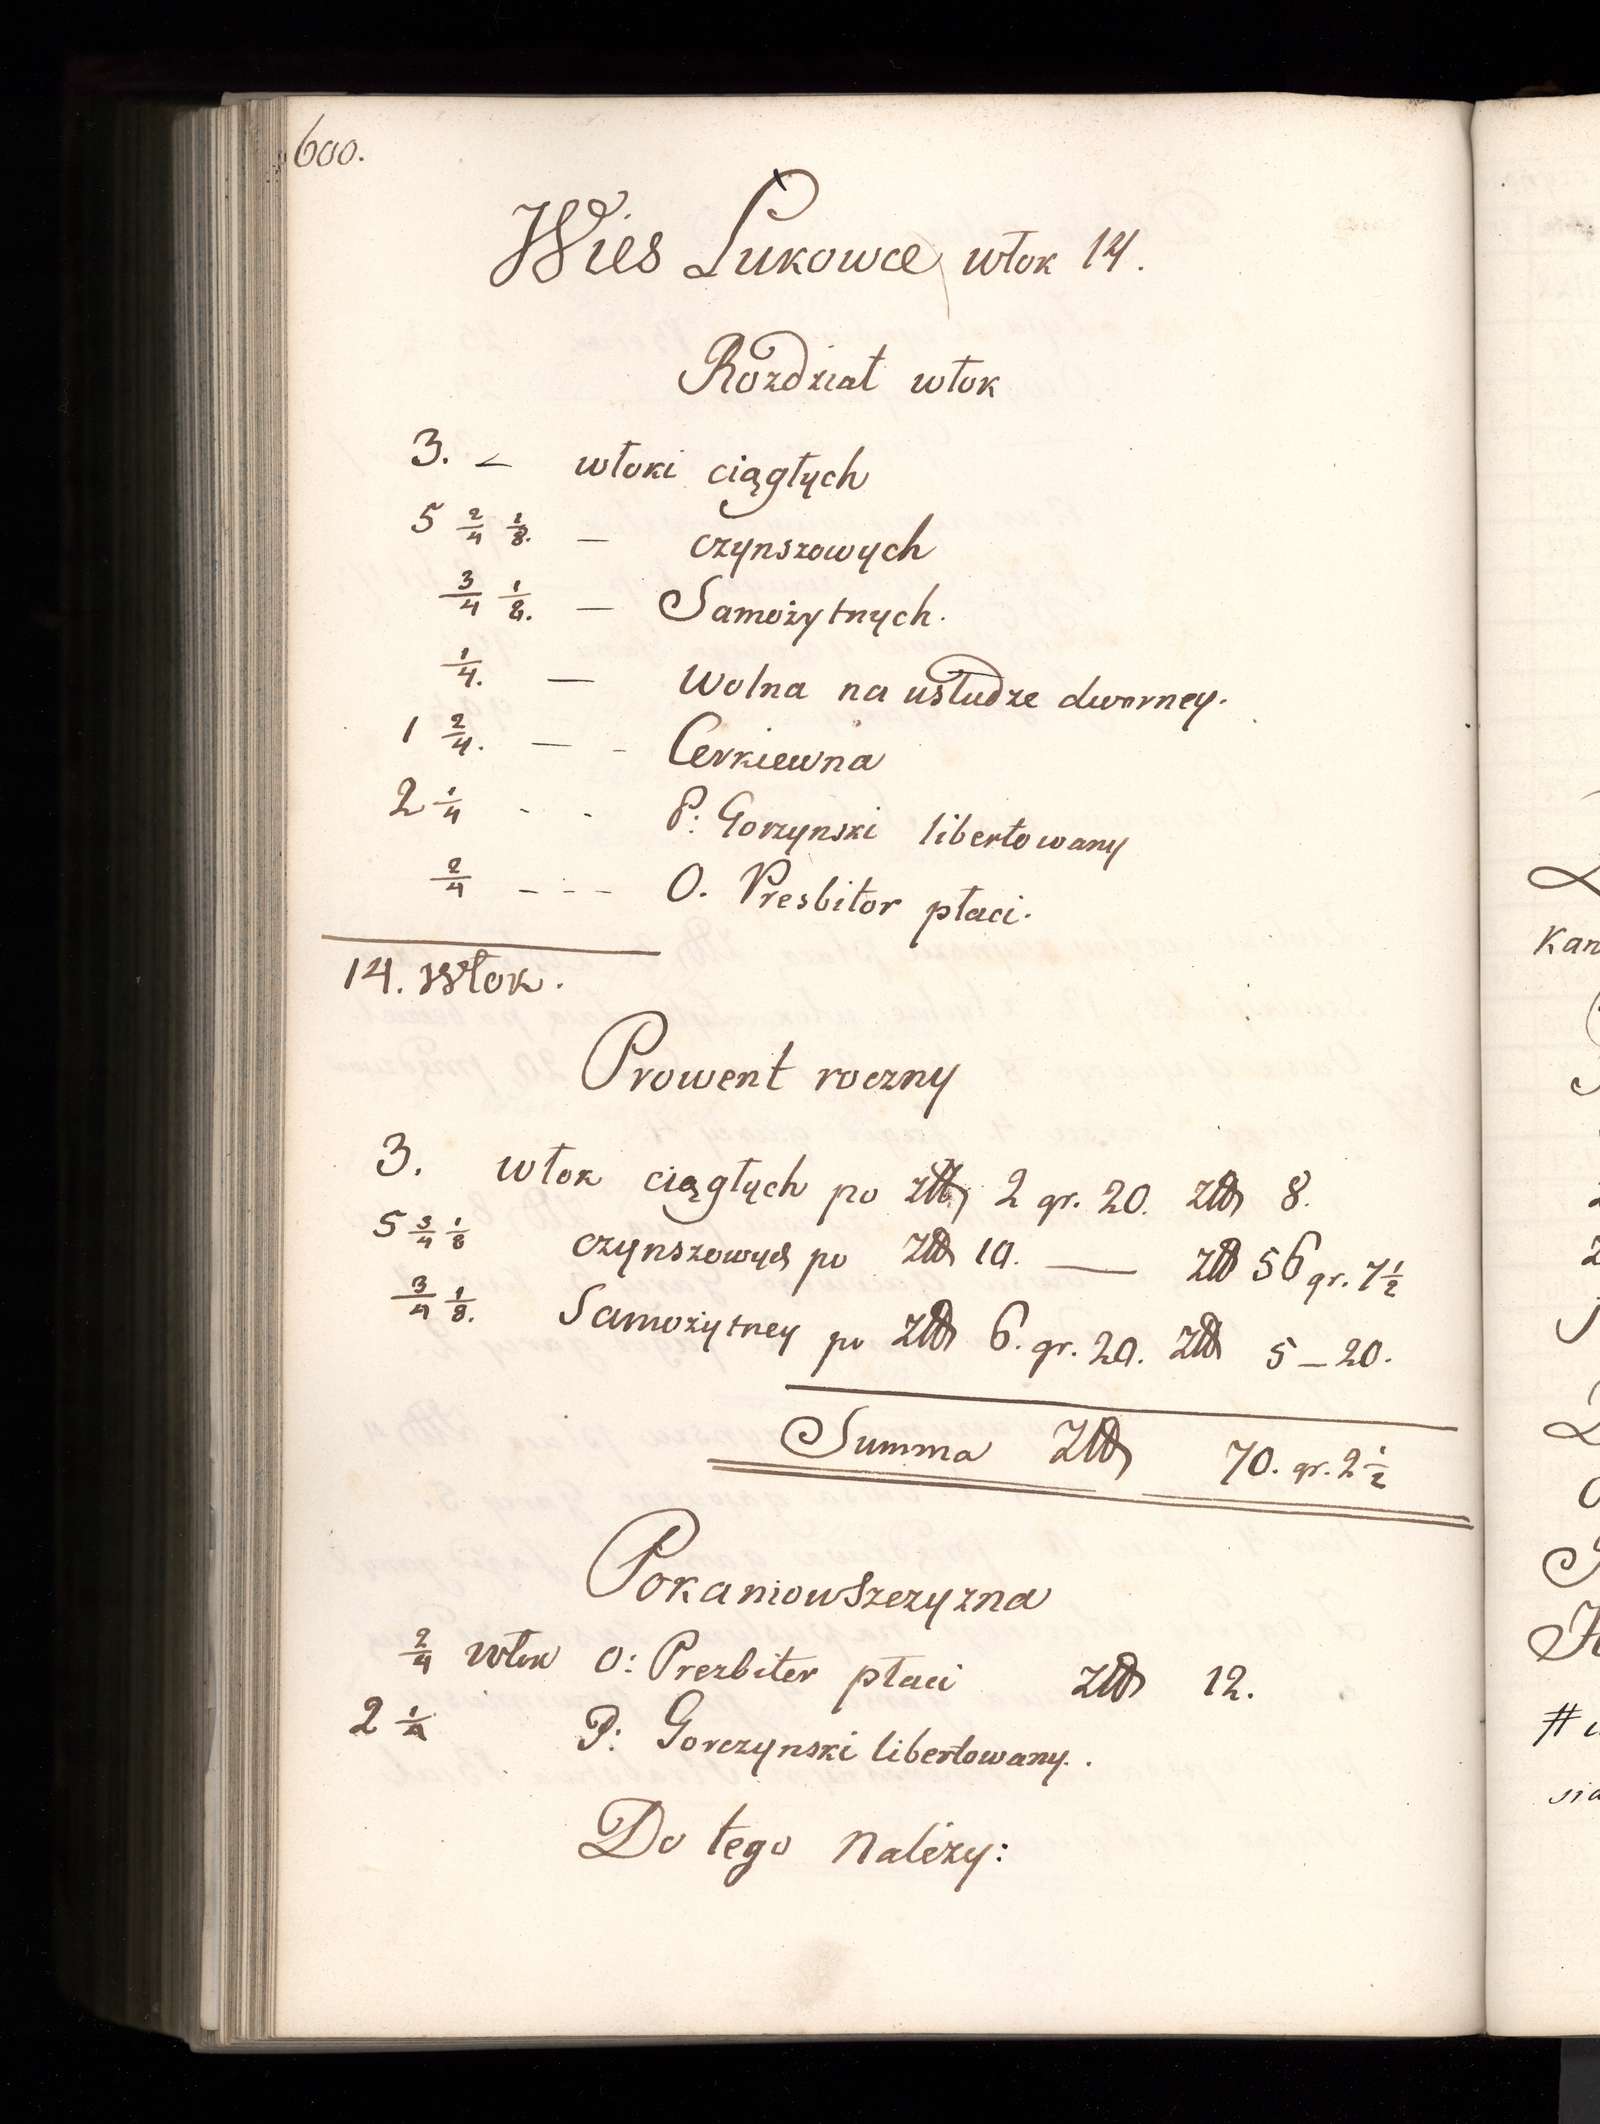 600.
Wies Łukowce włok 14.
Rozdział włok
3. – włoki ciągłych
5 2/4 1/8. – czynszowych
3/4 1/8. – Samożytnych.
1/4. – wolna na usłudze dworney.
1 2/4. – - Cerkiewna
2 1/4 - - P: Gorzynski libertowany
2/4 - - - O. Presbitor płaci.
14. Włok.
Prowent roczny
3. włok ciągłych po złł 2 gr. 20. złł 8.
5 3/4 1/8 czynszowych po złł 10. — złł 56 gr. 7 1/2
3/4 1/8. Samożytney po złł 6. gr. 20. złł 5 – 20.
Summa Złł 70. gr. 2 1/2
Pokaniowszczyzna
2/4 włok O: Prezbiter płaci złł 12.
2 1/4 P: Gorczynski libertowany.
Do tego Należy: